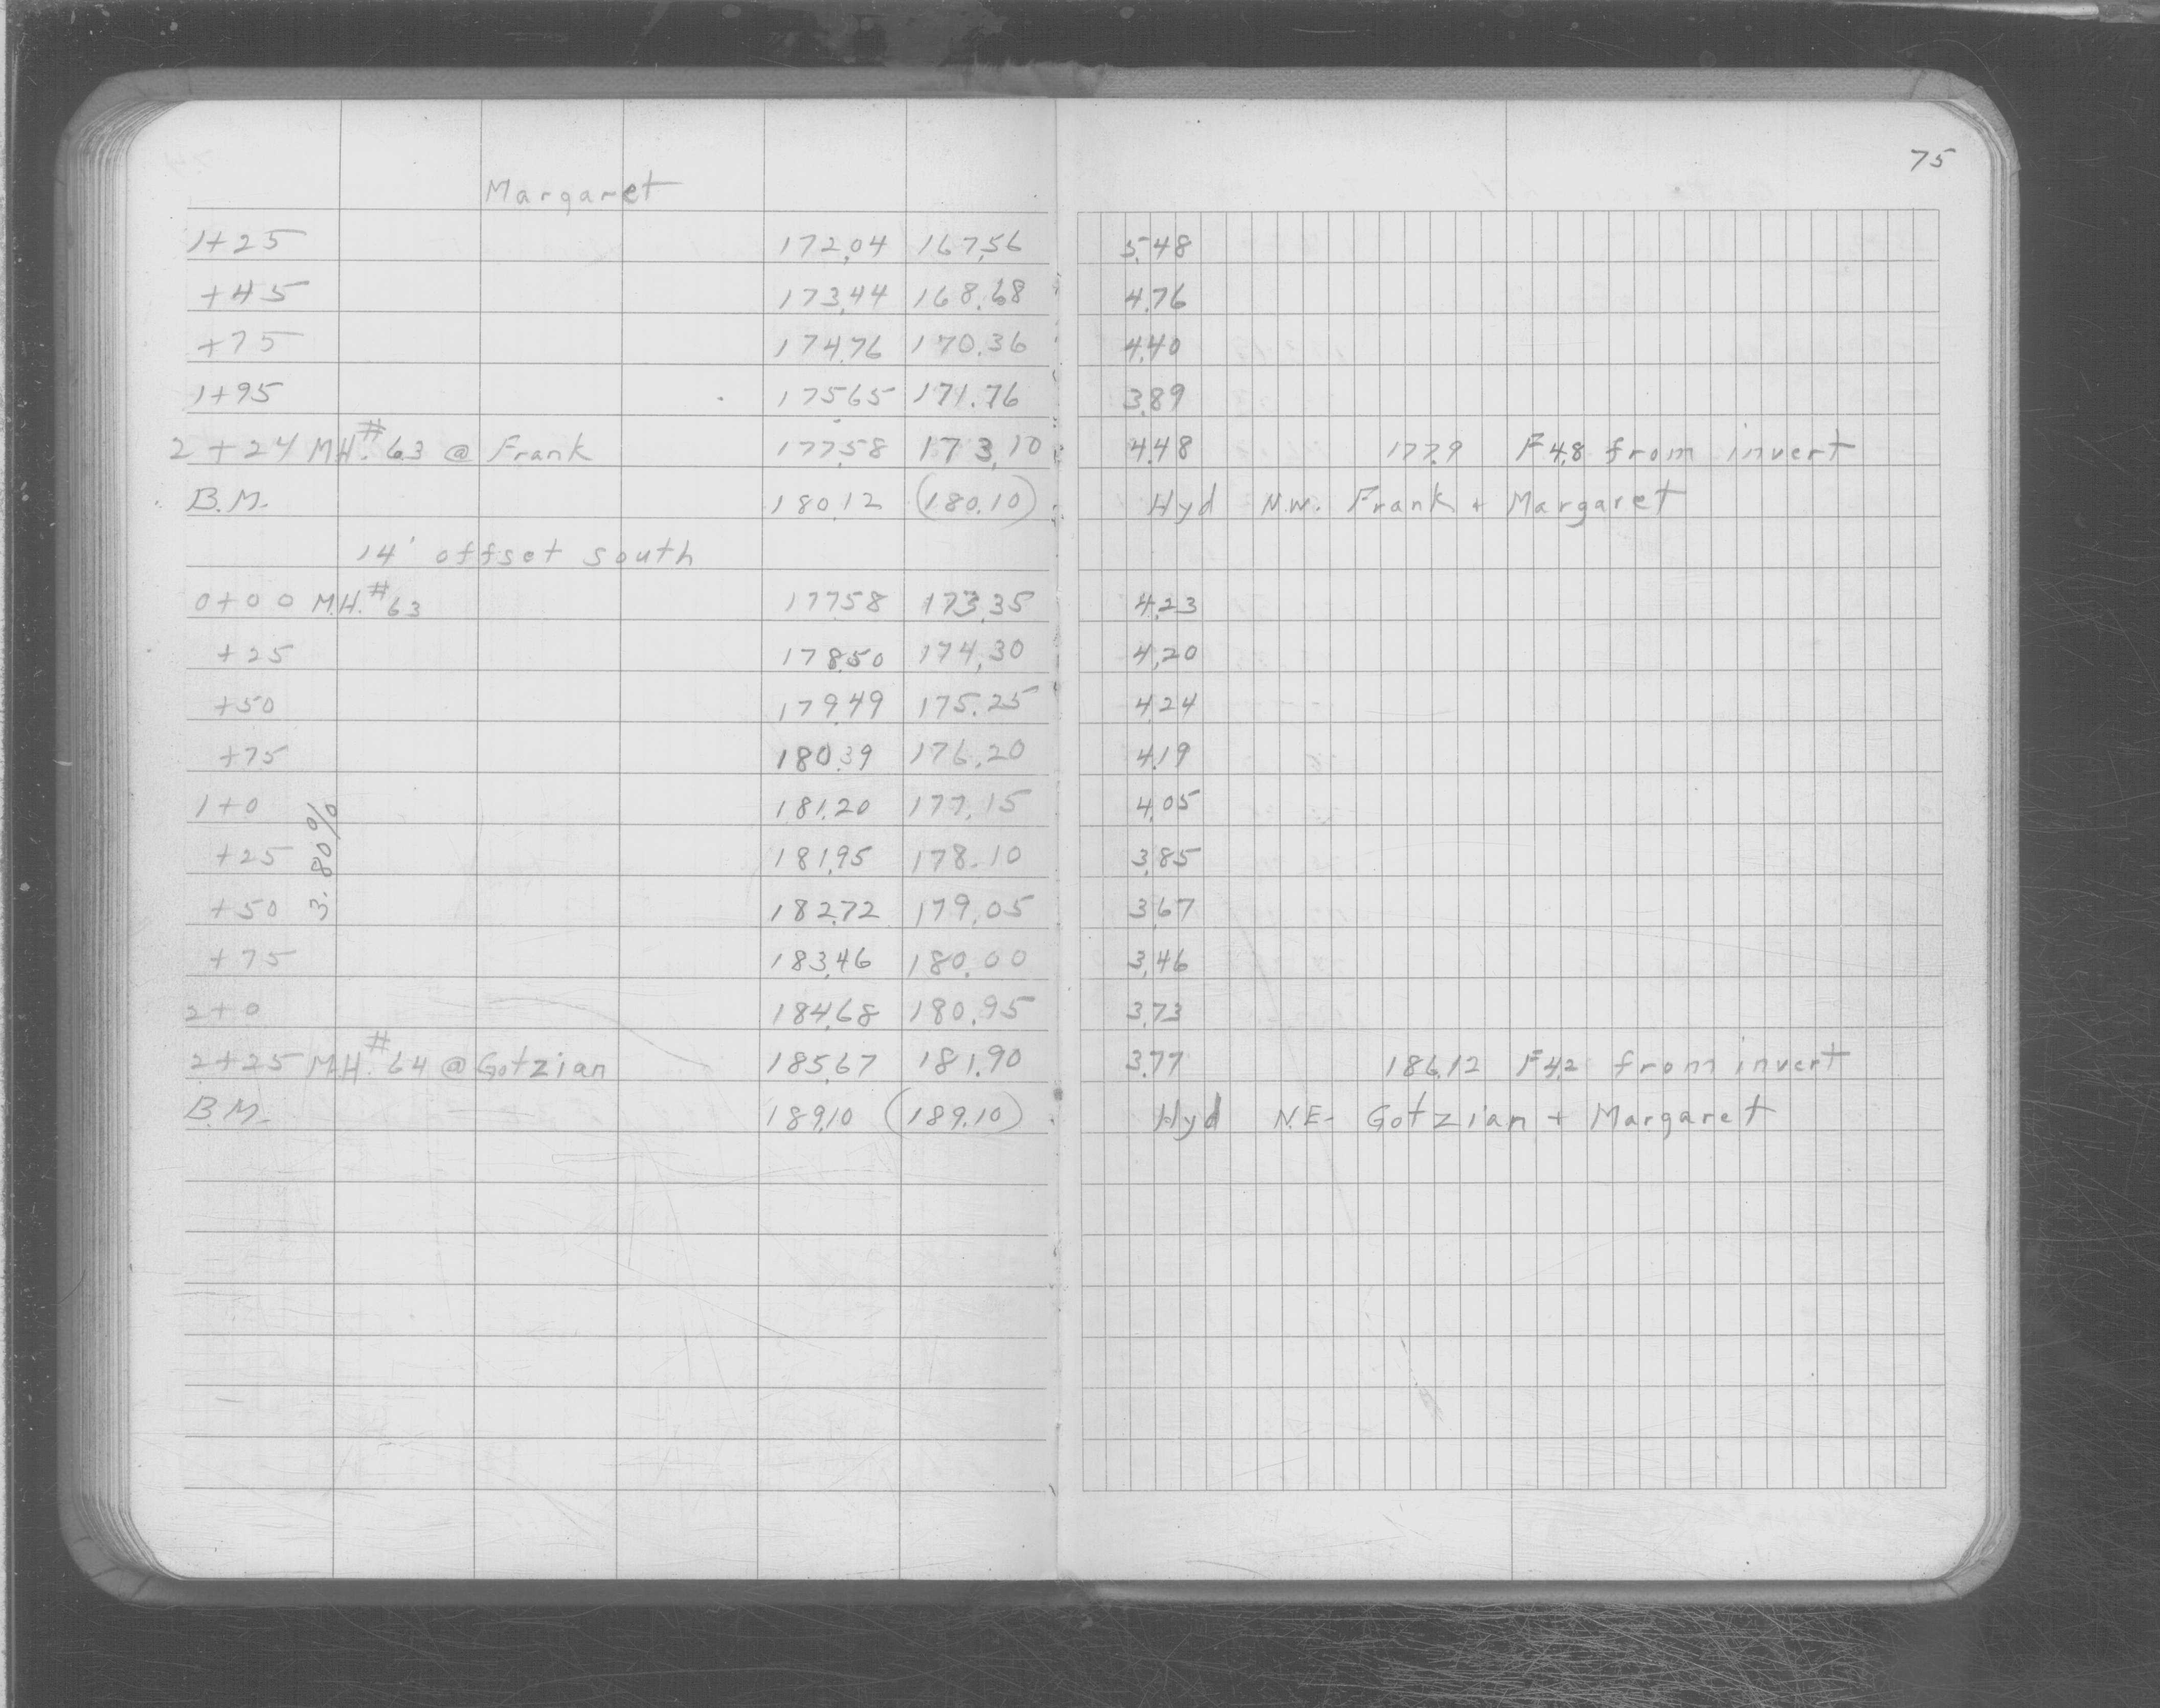 75
Margaret
1+25 172.04 167.56 5.48
+45 173.44 168.68 4.76
+75 174.76 170.36 4.40
1+95 175.65 171.76 3.89
2+24 M.H. #63 @ Frank 177.58 173.10 4.48 177.9 F4.8 from invert
B.M. 180.12 (180.10) Hyd N.W. Frank + Margaret
14' offset south
0+00 M.H. #63 177.58 173.35 4.23
+25 178.50 174.30 4.20
+50 179.49 175.25 4.24
+75 180.39 176.20 4.19
1+0 181.20 177.15 4.05
+25 181.95 178.10 3.85
+50 182.72 179.05 3.67
3.80%
+75 183.46 180.00 3.46
2+0 184.68 180.95 3.73
2+25 M.H. #64 @ Gotzian 185.67 181.90 3.77 186.12 F4.2 from invert
B.M. 189.10 (189.10) Hyd N.E. Gotzian + Margaret